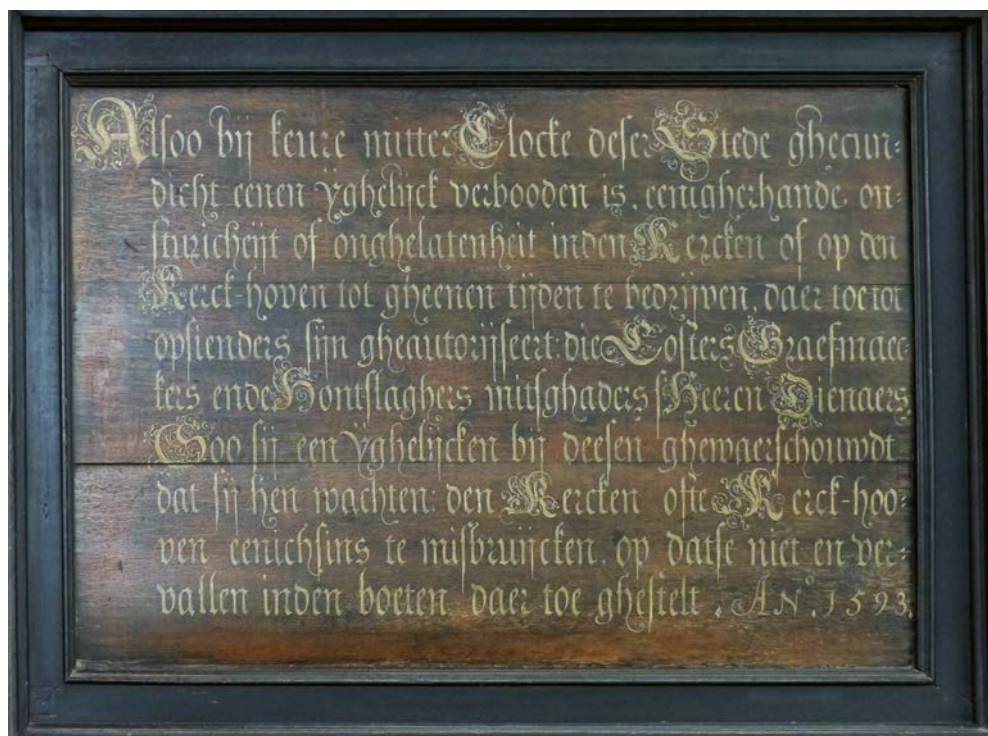 Alsoo bij keure mitter Clocke deser Stede ghecun-
dicht eenen yghelijck verbooden is, eenigherhande on-
sturicheijt of onghelatenheit inden Kercken of op den
Kerck-hoven tot gheenen tijden te bedrijven, daer toe tot
opsienders sijn gheautorijseert: die Costers Graefmaec-
kers ende Hontslaghers mitsghaders s'Heeren Dienaers,
Soo sij een yghelijcken bij deesen ghewaerschouwdt
dat sij hen wachten: den Kercken ofte Kerck-hoo-
ven eenichsins te misbruijcken, op datse niet en ver-
vallen inden boeten daer toe ghestelt. AN°. 1593.